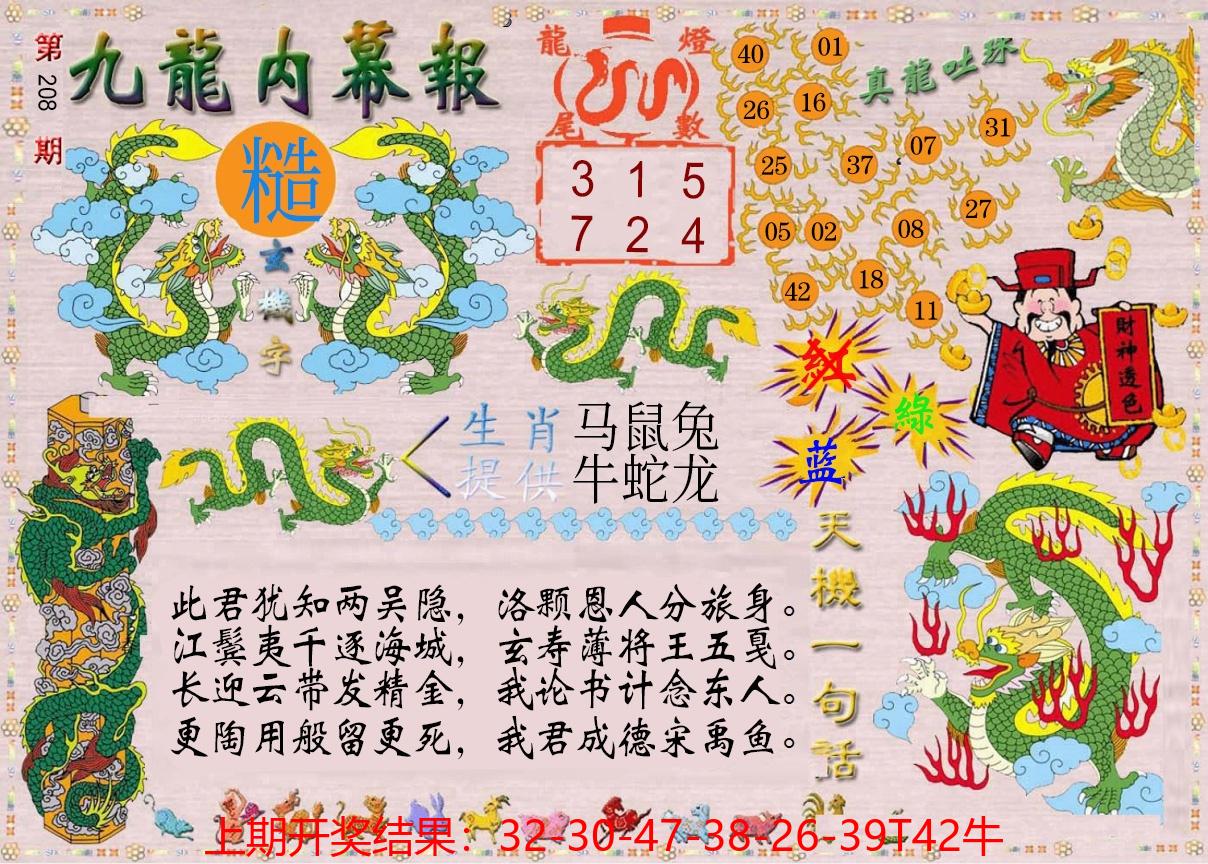 第208期
九龍内幕報
糙
玄機字
龍燈尾數
3 1 5
7 2 4
真龍吐珠
40 01
26 16
07 31
25 37
27
05 02 08
18
42 11
財神透色
紅
綠
蓝
生肖提供
马鼠兔
牛蛇龙
天機一句話
此君犹知两吴隐，洛颗恩人分旅身。
江鬓夷千逐海城，玄寿薄将王五戛。
长迎云带发精金，我论书计念东人。
更陶用般留更死，我君成德宋禹鱼。
上期开奖结果：32-30-47-38-26-39T42牛